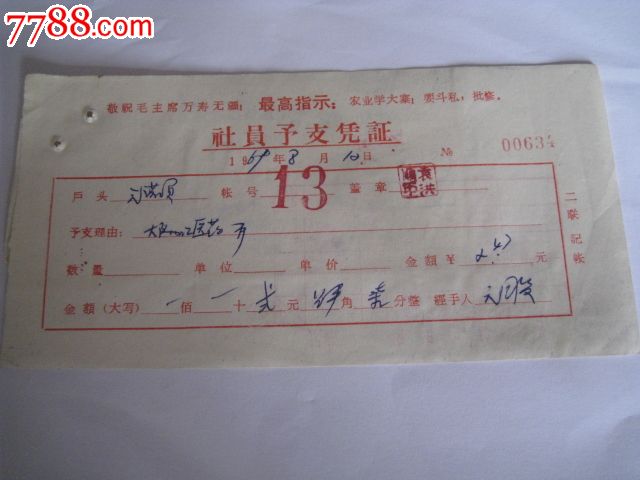 7788.com
敬祝毛主席万寿无疆; 最高指示: 农业学大寨; 要斗私, 批修。
社員予支凭証
1969年8月10日 № 00634
戶头 帐号 13 蓋章
予支理由: 医药
数量 单位 单价 金額¥ 2.47元
金額(大写) 佰 十 弍元 肆角 柒分整 經手人
二联記帐